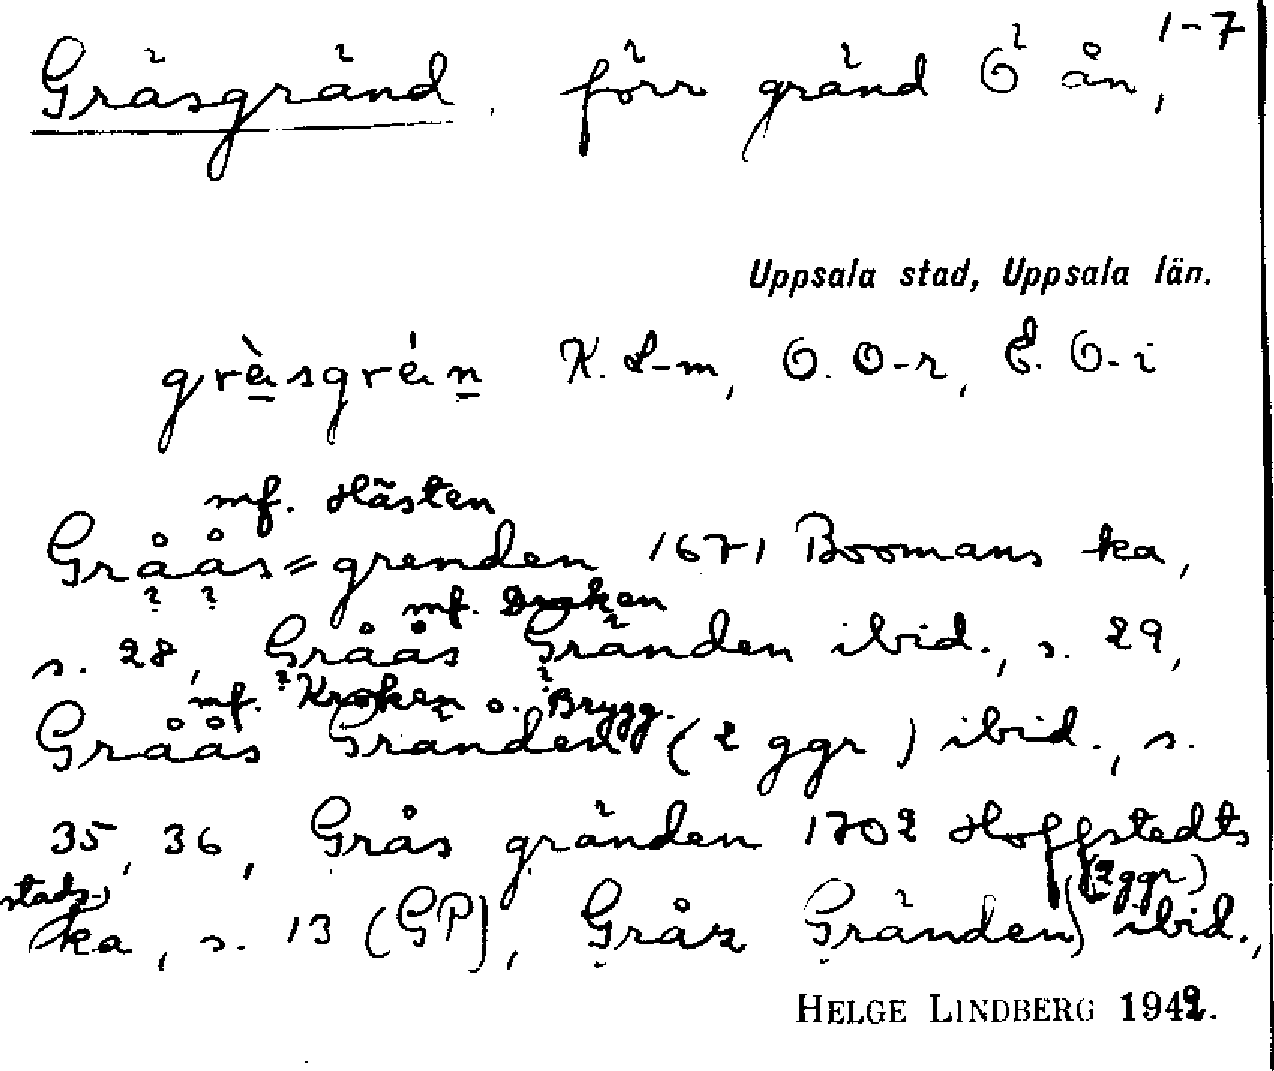 1-7
Gräsgränd, förr gränd Ö ån,
Uppsala stad, Uppsala län.
grä̀sgrä́n K. L-m, O. O-r, E. Ö-i
mf. Hästen
Gråås=grenden 1671 Boomans ka,
mf. Draken
s. 28, Gråås Gränden ibid., s. 29,
mf. Kroken o. Brygg.
Gråås Gränden (2 ggr) ibid., s.
35, 36, Grås gränden 1702 Hoffstedts
stads-
(2 ggr)
ka, s. 13 (GP), Gråz Gränden ibid.,
HELGE LINDBERG 1942.